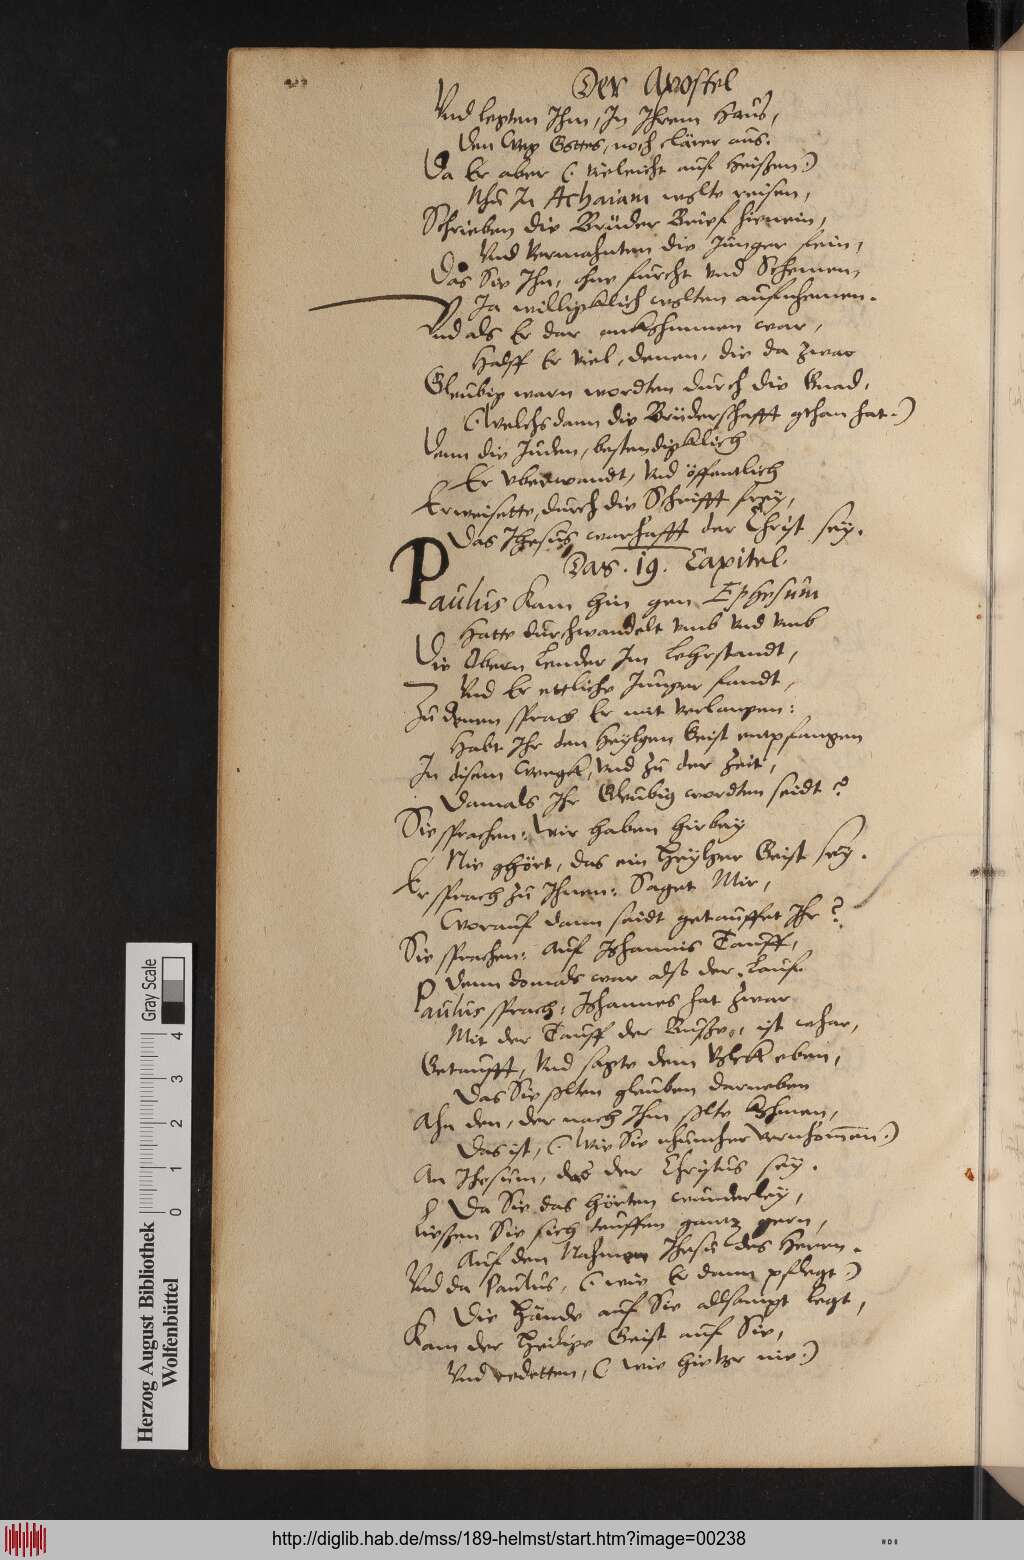 Der Apostel
Vnd legten Ihm, In Ihrem Hauß,
Den Weg Gottes, noch clärer aus.
Da Er aber (: vieleicht auf heißen:)
Nhu In Achaiam wolte reisen,
Schrieben die Brüder Brief hienein,
Vnd vermahnten die Junger fein,
Das Sie Ihn, ohne furcht vnd Schemen,
Ja williglich wolten aufnhemen.
Vnd als Er dar ankohmmen war,
Halff Er viel, denen, die da zwar
Gleubig warn wordten durch die Gnad,
(: Welchs dann die Brüderschafft gthan hat:)
Denn die Juden, bestendigklich
Er vberwandt, vnd öffentlich
Erweisette, durch die Schrifft frey,
Das Jhesus warhafft der Christ sey.
Das . 19 . Capitel.
Paulus Kam hin gen Ephesum
Hatte durchwandelt vmb vnd vmb
Die Obern Lender Im Lehrstandt,
Vnd Er ettliche Junger fandt,
Zu denen sprach Er mit verlangen:
Habt Ihr den heylgen Geist entpfangen
In disem Wegk, vnd zu der Zeit,
Damals Ihr Gleubig wordten seidt?
Sie sprachen: Wir haben hirbey
Nie ghört, das ein Heylger Geist sey.
Er sprach zu Ihnen: Saget Mir,
Worauf dann seidt getauffet Ihr?
Sie sprachen: Auf Johannis Tauff,
Denn domals war also der Lauf.
Paulus sprach: Johannes hat zwar
Mit der Tauff der Busse, ist whar,
Getaufft, Vnd sagte dem Volck eben,
Das Sie solten gleuben darneben
Ahn den, der nach Ihm solte kohmen,
Das ist, (: Wie Sie vernhommen:)
An Jhesum, das der Christus sey.
Da Sie das hörten wunderley,
Ließen Sie sich teuffen gantz gern,
Auf den Nahmen Jhesu des Herrn.
Vnd da Paulus, (: wie Er dann pflegt:)
Die Hände auf Sie allsampt legt,
Kam der Heilige Geist auf Sie,
Vnd redetten, (: wie hie vor nie:)
Herzog August Bibliothek
Wolfenbüttel
0 1 2 3 4
Gray Scale
http://diglib.hab.de/mss/189-helmst/start.htm?image=00238